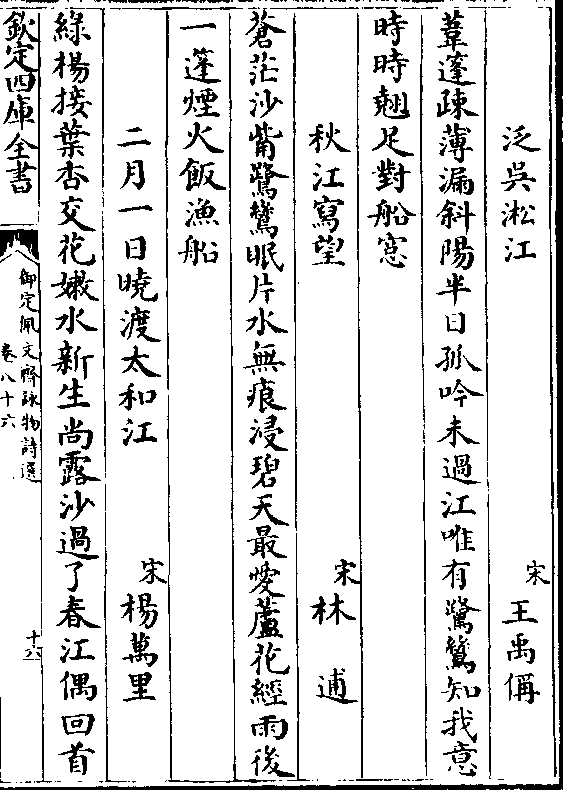 泛吳淞江 宋 王禹偁
葦蓬疎薄漏斜陽半日孤吟未過江唯有鷺鷥知我意
時時翹足對船窓
秋江寫望 宋 林逋
蒼茫沙觜鷺鷥眠片水無痕浸碧天最愛蘆花經雨後
一蓬煙火飯漁船
二月一日曉渡太和江 宋 楊萬里
綠楊接葉杏交花嫩水新生尚露沙過了春江偶回首
欽定四庫全書
御定佩文齊詠物詩選
卷八十六
十六